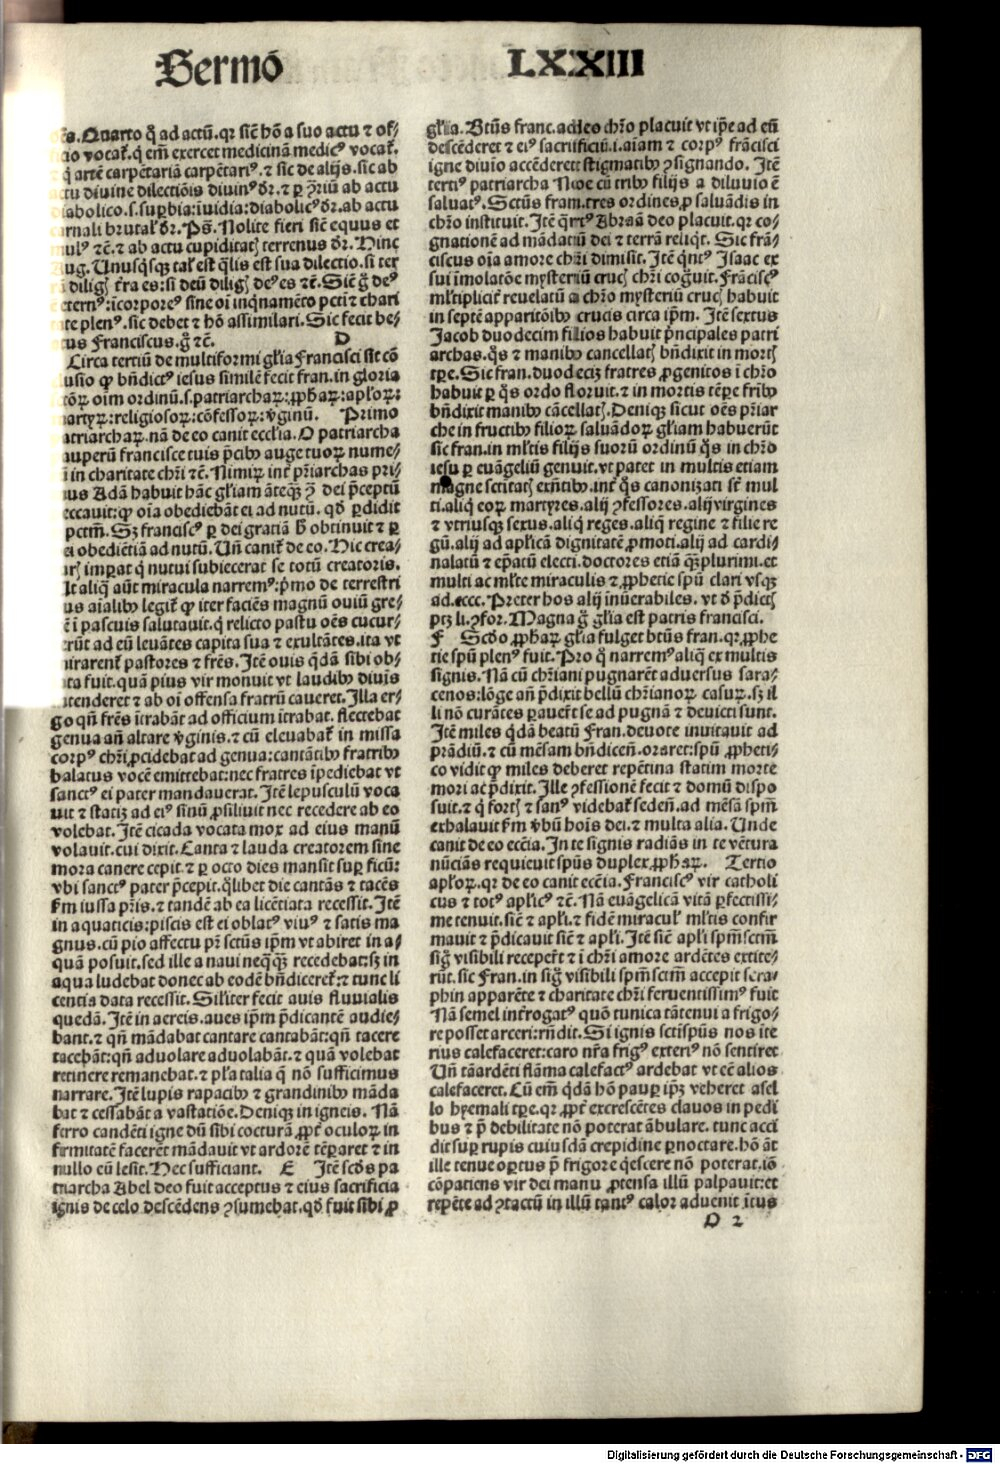 Sermõ LXXIII
Quarto q̃ ad actũ.qr siẽ hõ a suo actu ⁊ of⸗
cio vocat̃.q em̃ exercet medicinã medicꝰ vocat̃.
q̃ artẽ carpẽtariã carpẽtariꝰ.⁊ sic de alijs.sic ab
actu diuine dilectiõis diuinꝰ dr̃.⁊ ꝑ ꝯ̃riũ ab actu
diabolico.s.suꝑbia:ĩuidia:diabolicꝰ dr̃.ab actu
carnali brutal̃ dr̃.Ps̃.Nolite fieri siẽ equus et
mulꝰ ⁊c̃.⁊ ab actu cupiditatꝭ terrenus dr̃.Hinc
Aug.Unusq̃sqꝫ tal̃ est q̃lis est sua dilectio.si ter
rã diligꝭ t̃ra es:si deũ diligꝭ deꝰ es ⁊c̃.Siẽ g̃ deꝰ
eternꝰ:ĩcorporeꝰ sine oĩ inq̃namẽto pctĩ ⁊ chari
tate plenꝰ.sic debet ⁊ hõ assimilari.Sic fecit be⸗
atus Franciscus.g̃ ⁊c̃. D
Circa tertiũ de multiformi gl̃ia Francisci sit cõ
clusio ꝙ bñdictꝰ iesus similẽ fecit fran.in gloria
sctõꝝ oĩm ordinũ.s.patriarchaꝝ:ꝓphaꝝ:apl̃oꝝ:
martyꝝ:religiosoꝝ:cõfessoꝝ:v̾ginũ. Primo
patriarchaꝝ.nã de eo canit eccl̃ia.O patriarcha
pauperũ francisce tuis p̃cibꝰ auge tuoꝝ nume⸗
rũ in charitate chr̃i ⁊c̃.Nimiꝝ int̃ pr̃iarchas pri⸗
mus Adã habuit hãc gl̃iam ãteqꝫ ꝯ̃ dei p̃ceptũ
peccauit:ꝙ oĩa obediebãt ei ad nutũ.qd̾ ꝑdidit
ꝑ pctm̃.Sꝫ franciscꝰ ꝑ dei gratiã h̾ obtinuit ⁊ ꝑ
ei obediẽtiã ad nutũ.Uñ canit̃ de eo.Hic crea⸗
turꝭ imꝑat q̃ nutui subiecerat se totũ creatoris.
Ut aliq̃ aũt miracula narremꝰ:p̾mo de terrestri
bus aĩalibꝰ legit̃ ꝙ iter faciẽs magnũ ouiũ gre⸗
gẽ ĩ pascuis salutauit.q̃ relicto pastu oẽs cucur⸗
rerũt ad eũ leuãtes capita sua ⁊ exultãtes.ita vt
mirarent̃ pastores ⁊ fr̃es.Itẽ ouis q̃dã sibi ob⸗
lata fuit.quã pius vir monuit vt laudibꝰ diuĩs
intenderet ⁊ ab oĩ offensa fratrũ caueret.Illa er⸗
go qñ fr̃es ĩtrabãt ad officium ĩtrabat.flectebat
genua añ altare v̾ginis.⁊ cũ eleuabat̃ in missa
corpꝰ chr̃i ꝓcidebat ad genua:cantãtibꝰ fratribꝰ
balatus vocẽ emittebat:nec fratres ĩpediebat vt
sanctꝰ ei pater mandauerat.Itẽ lepusculũ voca
uit ⁊ statiꝫ ad eiꝰ sinũ ꝓsiliuit nec recedere ab eo
volebat.Itẽ cicada vocata mox ad eius manũ
volauit.cui dixit.Canta ⁊ lauda creatorem sine
mora canere cepit.⁊ ꝑ octo dies mansit suꝑ ficũ:
vbi sanctꝰ pater p̃cepit.q̃libet die cantãs ⁊ tacẽs
fm̃ iussa pr̃is.⁊ tandẽ ab ea licẽtiata recessit.Itẽ
in aquaticis:piscis est ei oblatꝰ viuꝰ ⁊ satis ma
gnus.cũ pio affectu pr̃ sctũs ip̃m vt abiret in a⸗
quã posuit.sed ille a naui neq̃qꝫ recedebat:sꝫ in
aqua ludebat donec ab eodẽ bñdiceret̃:⁊ tunc li
centia data recessit.Silĩter fecit auis fluuialis
quedã.Itẽ in aereis.aues ip̃m p̃dicantẽ audie⸗
bant.⁊ qñ mãdabat cantare cantabãt:qñ tacere
tacebãt:qñ aduolare aduolabãt.⁊ quã volebat
retinere remanebat.⁊ pl̃a talia q̃ nõ sufficimus
narrare.Itẽ lupis rapacibꝰ ⁊ grandinibꝰ mãda
bat ⁊ cessabãt a vastatiõe.Deniqꝫ in igneis. Nã
ferro candẽti igne dũ sibi cocturã ꝓpt̃ oculoꝝ in
firmitatẽ faceret mãdauit vt ardorẽ tẽꝑaret ⁊ in
nullo eũ lesit.Hec sufficiant. E Itẽ scd̾s pa
triarcha Abel deo fuit acceptus ⁊ eius sacrificia
ignis de celo descẽdens ꝯsumebat.qd̾ fuit sibi ꝓ
gl̃ia.Btũs franc.adeo chr̃o placuit vt ip̃e ad eũ
descẽderet ⁊ eiꝰ sacrificiũ.i.aĩam ⁊ corpꝰ frãcisci
igne diuĩo accẽderet:stigmatibꝰ ꝯsignando. Itẽ
tertiꝰ patriarcha Noe cũ tribꝰ filijs a diluuio ẽ
saluatꝰ.Sctũs fram.tres ordines ꝓ saluãdis in
chr̃o instituit.Itẽ q̾rtꝰ Abraã deo placuit.qr co⸗
gnationẽ ad mãdatũ dei ⁊ terrã reliq̃t. Sic frã⸗
ciscus oĩa amore chr̃i dimisit.Itẽ q̃ntꝰ Isaac ex
sui ĩmolatõe mysteriũ crucꝭ chr̃i cog̃uit.Frãciscꝰ
ml̃tiplicit̃ reuelatũ a chr̃o mysteriũ crucꝭ habuit
in septẽ apparitõibꝰ crucis circa ip̃m. Itẽ sextus
Jacob duodecim filios habuit p̾ncipales patri
archas.q̃s ⁊ manibꝰ cancellatꝭ bñdixit in mortꝭ
tꝑe.Sic fran.duodeciꝫ fratres ꝓgenitos ĩ chr̃o
habuit ꝑ q̃s ordo floruit.⁊ in mortis tẽꝑe fr̃ibꝰ
bñdixit manibꝰ cãcellatꝭ.Deniqꝫ sicut oẽs pr̃iar
che in fructibꝰ filioꝝ saluãdoꝝ gl̃iam habuerũt
sic fran.in ml̃tis filijs suorũ ordinũ q̃s in chr̃o
iesu ꝑ euãgeliũ genuit.vt patet in multis etiam
magne sctitatꝭ exñtibꝰ.int̃ q̃s canonizati st̃ mul
ti.aliq̃ eoꝝ martyres.alij ꝯfessores.alij virgines
⁊ vtriusqꝫ sexus.aliq̃ reges.aliq̃ regine ⁊ filie re
gũ.alij ad apl̃icã dignitatẽ ꝓmoti.alij ad cardi⸗
nalatũ ⁊ ep̃atũ electi.doctores etiã q̃ꝫplurimi.et
multi ac ml̃te miraculis ⁊ ꝓphetie spũ clari vsqꝫ
ad.cccc.Preter hos alij ĩnũerabiles. vt d̾ p̃dictꝭ
ptꝫ li.ꝯfor.Magna g̃ gl̃ia est patris francisci.
F Scd̾o ꝓphaꝝ gl̃ia fulget btũs fran.qr ꝓphe
tie spũ plenꝰ fuit.Pro q̃ narremꝰ aliq̃ ex multis
signis.Nã cũ chr̃iani pugnarẽt aduersus sara⸗
cenos:lõge añ p̃dixit bellũ chr̃ianoꝝ casuꝝ.sꝫ il
li nõ curãtes ꝑauer̃t se ad pugnã ⁊ deuicti sunt.
Itẽ miles q̃dã beatũ Fran.deuote inuitauit ad
prãdiũ.⁊ cũ mẽsam bñdiceñ.oraret:spũ ꝓpheti⸗
co vidit ꝙ miles deberet repẽtina statim morte
mori ac p̃dixit.Ille ꝯfessionẽ fecit ⁊ domũ dispo
suit.⁊ q̃ fortꝭ ⁊ sanꝰ videbat̃ sedeñ.ad mẽsã spm̃
exhalauit fm̃ v̾bũ hoĩs dei.⁊ multa alia.Unde
canit de eo ecc̃ia.In te signis radiãs in te vẽtura
nũciãs requieuit spũs duplex ꝓphaꝝ. Tertio
apl̃oꝝ.qr de eo canit ecc̃ia.Franciscꝰ vir catholi
cus ⁊ totꝰ apl̃icꝰ ⁊c̃.Nã euãgelicã vitã ꝑfectissi⸗
me tenuit.siẽ ⁊ apl̃i.⁊ fidẽ miracul̃ ml̃tis confir
mauit ⁊ p̃dicauit siẽ ⁊ apl̃i.Itẽ siẽ apl̃i spm̃sctm̃
sig̃ visibili receper̃t ⁊ ĩ chr̃i amore ardẽtes extite⸗
rũt.sic Fran.in sig̃ visibili spm̃sctm̃ accepit sera⸗
phin apparẽte ⁊ charitate chr̃i feruentissimꝰ fuit
Nã semel int̃rogatꝰ quõ tunica tãtenui a frigo⸗
re posset arceri:rñdit.Si ignis sctĩspũs nos ĩte
rius calefaceret:caro nr̃a frigꝰ exteriꝰ nõ sentiret
Uñ tãardẽti flãma calefactꝰ ardebat vt eẽ alios
calefaceret.Cũ em̃ q̃dã hõ pauꝑ ip̃ꝫ veheret asel
lo hyemali tꝑe.qr ꝓpt̃ excrescẽtes clauos in pedi
bus ⁊ p̃ debilitate nõ poterat ãbulare.tunc acci
dit suꝑ rupis cuiusdã crepidine ꝑnoctare.hõ ãt
ille tenue oꝑtus p̃ frigore q̃escere nõ poterat.iõ
cõpatiens vir dei manu ꝓtensa illũ palpauit:et
repẽte ad ꝯtactũ in illũ tantꝰ calor aduenit ĩtus
O 2
Digitalisierung gefördert durch die Deutsche Forschungsgemeinschaft - DFG